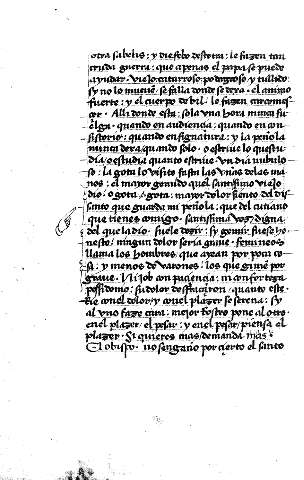 otra sabelis: y
cruda guerra: que apenas el papa se puede
ayudar. viejo catarroso podagroso y tullido
sy no lo mueuē. se falla donde se dexa. el animo
fuerte: y el cuerpo debil. le fazen carnes
cer. Alli donde esta: sola vna hora nunca fu
elga. quando en audiencia: quando en con
sistorio: quando en signatura: y la peñola
nunca dexa quando solo. o escriue lo que estu
dia/o estudia quanto escriue. vn dia
so: la gota lo visito fasta las vñas delas ma
nos: el mayor gemido quel santissimo viejo
dio: o gota/gota: mayor dolor siento del dis
santo que guarda mi peñola: que del cutiano
que tienes comigo. santissima voz digna
del que la dio. suele dezir: sy gemir fuese ho
nesto/ningun dolor seria graue. femineos
llama los hombres que por poca co
sa: y menos de varones. los que gimē por
graue. Ni Job con paciencia: ni con fortaleza
possidonio: su dolor quanto este.
Rie con el dolor/y con el plazer se serena: sy
al vno faze cara: mejor rostro pone al otro
en el plazer. el pesar: y en el pesar/piensa el
plazer. Si quieres mas demanda mas.
El obispo. no sengaño por cierto el santo